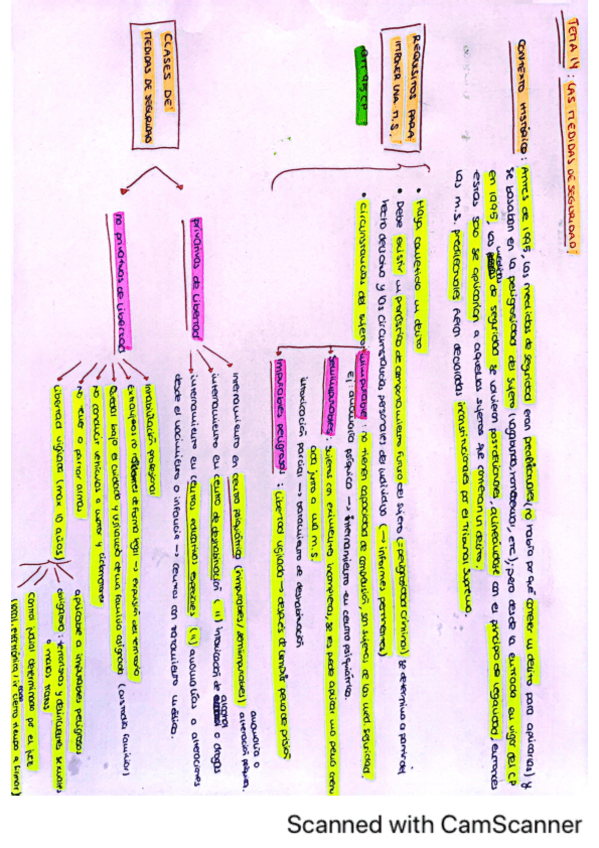 TEMA 14: LAS MEDIDAS DE SEGURIDAD!
CONTEXTO HISTÓRICO: Antes de 1995, las medidas de seguridad eran predelictuales (no había por qué cometer un delito para aplicarlas) y
se basaban en la peligrosidad del sujeto (vagabundos, etc), pero desde la entrada en vigor del CP
en 1995, las medidas de seguridad se volvieron postdelictuales, acorde con el principio de legalidad, entonces
estas solo se aplicarían a aquellos sujetos que cometieran un delito.
Las m.s. predelictuales fueron declaradas inconstitucionales por el Tribunal Supremo.
REQUISITOS PARA
IMPONER UNA M.S.!
Art. 95 CP!
• Haya cometido un delito
• Debe existir un pronóstico de comportamiento futuro del sujeto (= peligrosidad criminal) se determina a partir del
hecho delictivo y las circunstancias personales del individuo (→ informes pertinentes)
• Circunstancias del sujeto
Inimputable: no tienen capacidad de comprensión, son sujetos de las med. seguridad.
Ej: anomalía psíquica → internamiento en centro psiquiátrico.
Semiimputables: sujetos con eximentes incompletas, se les puede aplicar una pena
junto a una m.s.
intoxicación parcial → tratamiento de deshabituación
Imputables peligrosos: libertad vigilada → después de cumplir pena de prisión
CLASES DE!
MEDIDAS DE SEGURIDAD
privativas de libertad
internamiento en centro psiquiátrico (inimputables/semiimputables) anomalía o alteración psíquica.
internamiento en centro de deshabituación (") intoxicación de alcohol o drogas
internamiento en centros educativos especiales (") anomalías o alteraciones
desde el nacimiento o infancia → centros con tratamiento médico.
no privativas de libertad
Inhabilitación profesional
Extranjero de forma legal → expulsión del territorio
Quedar bajo el cuidado y vigilancia de un familiar asignado (custodia familiar)
No conducir vehículos a motor y ciclomotores
No tener o portar armas
Libertad vigilada (max 10 años)
aplicable a imputables peligrosos
obligatorio: terroristas y delincuentes sexuales
o malos tratos
Control judicial determinado por el juez
Scanned with CamScanner